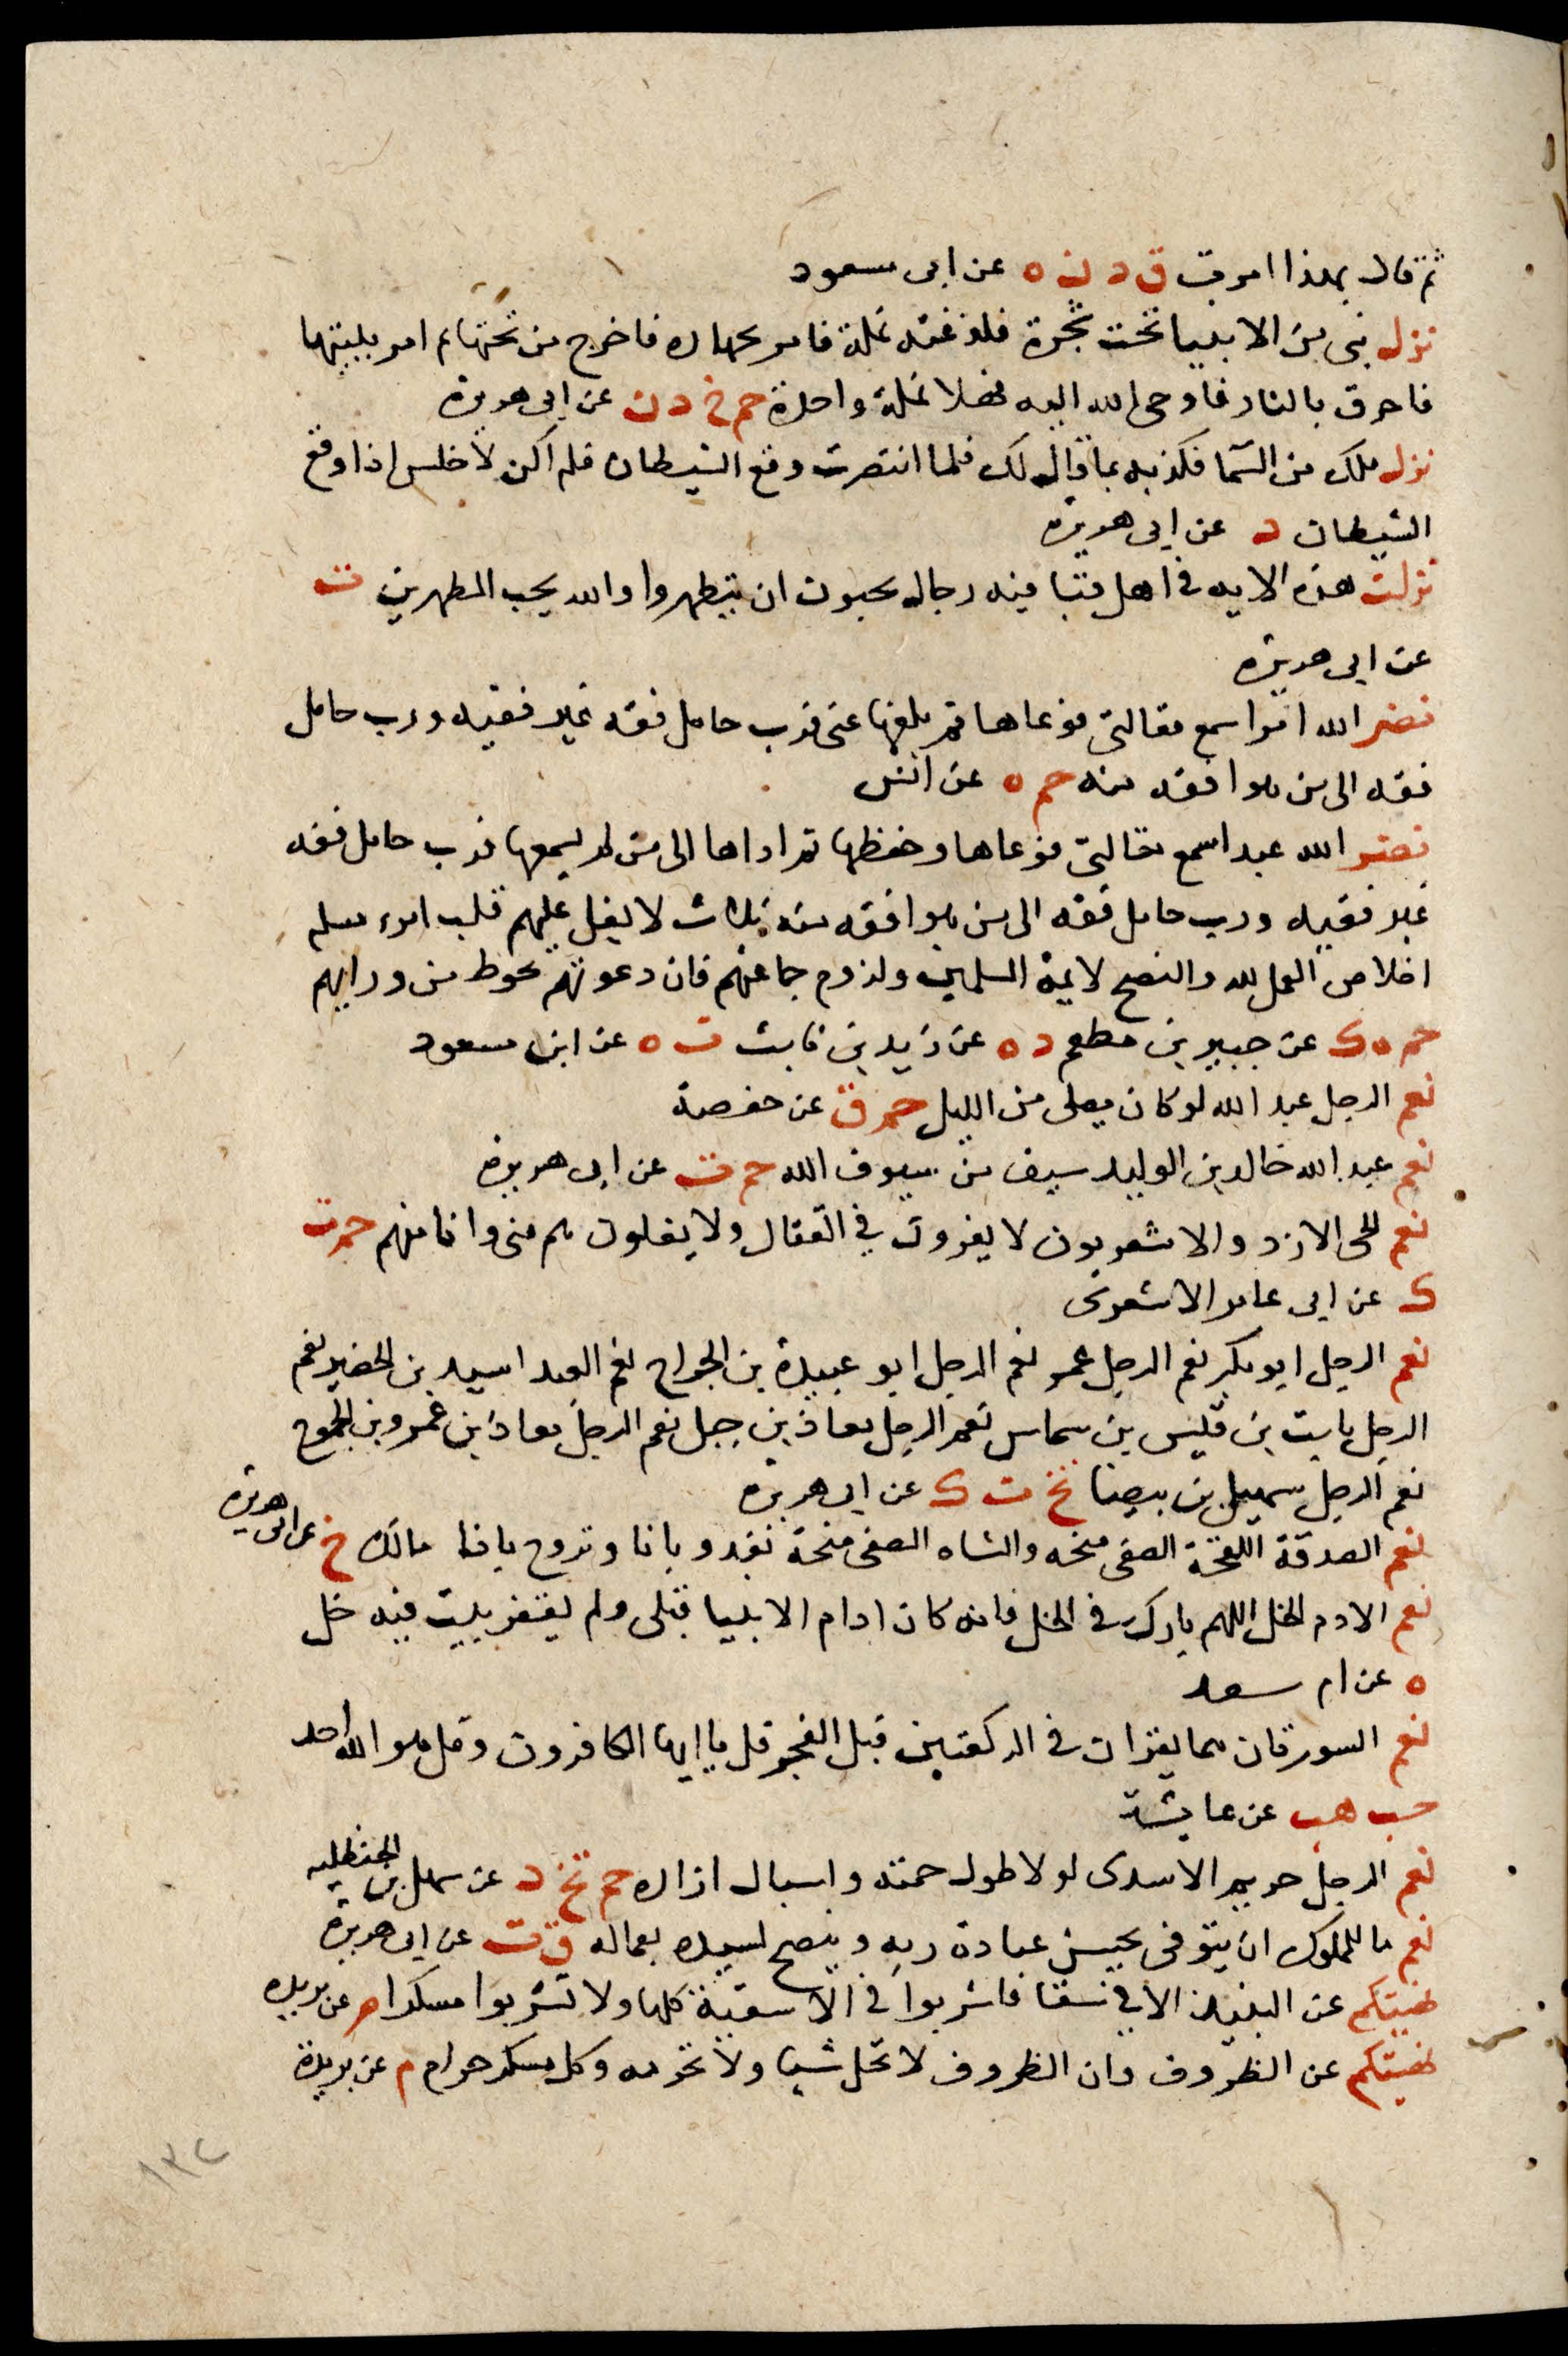 ثم قال بهذا امرت ق د ن ه عن ابى مسعود
نزل نبى من الانبيا تحت شجرة فلدغته نملة فامر بجهازه فاخرج من تحتها ثم امر ببيتها
فاحرق بالنار فاوحى الله اليه فهلا نملة واحدة حم خ د ن عن ابى هريرة
نزل ملك من السما فكذبه بما قال لك فلما انتصرت وقع الشيطان فلم اكن لاجلس اذا وقع
الشيطان د عن ابى هريرة
نزلت هذه الايه فى اهل قبا فيه رجال يحبون ان يتطهروا والله يحب المطهرين ت
عن ابى هريرة
نضر الله امرا سمع مقالتى فوعاها ثم بلغها عنى فرب حامل فقه غير فقيه ورب حامل
فقه الى من هو افقه منه حم ه عن انس
نضر الله عبدا سمع مقالتى فوعاها وحفظها ثم اداها الى من لم يسمعها فرب حامل فقه
غير فقيه ورب حامل فقه الى من هو افقه منه ثلاث لا يغل عليهم قلب امرء مسلم
اخلاص العمل لله والنصح لايمة المسلمين ولزوم جماعتهم فان دعوتهم تحوط من ورايهم
حم ه ك عن جبير بن مطعم د ه عن زيد بن ثابت ت ه عن ابن مسعود
نعم الرجل عبد الله لو كان يصلى من الليل حم ق عن حفصة
نعم عبد الله خالد بن الوليد سيف من سيوف الله حم ت عن ابى هريرة
نعم الحى الازد والاشعريون لا يفرون في القتال ولا يغلون هم منى وانا منهم حم ت
ك عن ابى عامر الاشعرى
نعم الرجل ابو بكر نعم الرجل عمر نعم الرجل ابو عبيدة بن الجراح نعم العبد اسيد بن الحضير نعم
الرجل ثابت بن قيس بن شماس نعم الرجل معاذ بن جبل نعم الرجل معاذ بن عمرو بن الجموح
نعم الرجل سهيل بن بيضا تخ ت ك عن ابى هريرة
نعم الصدقة اللقحة الصفى منحه والشاه الصفى منحة تغدو بانا وتروح بانا مالك خ عن ابى هريرة
نعم الادم الخل اللهم بارك فى الخل فانه كان ادام الانبيا قبلى ولم يقفر بيت فيه خل
ه عن ام سعد
نعم السورتان هما يقران فى الركعتين قبل الفجر قل يا ايها الكافرون وقل هو الله احد
حب هب عن عايشة
نعم الرجل خريم الاسدى لولا طول جمته واسبال ازاره حم تخ د عن سهل بن الحنظليه
نعم ما للمملوك ان يتوفى يحسن عبادة ربه وينصح لسيده بعماله ق ت عن ابى هريرة
نهيتكم عن النبيذ الا في سقا فاشربوا في الاسقية كلها ولا تشربوا مسكرا م عن بريده
نهيتكم عن الظروف وان الظروف لا تحل شيا ولا تحرمه وكل مسكر حرام م عن بريدة
١٣٢